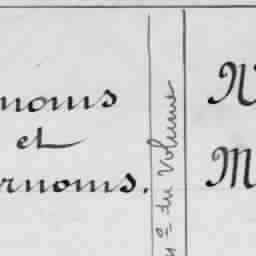 noms
et
rnoms.
du Volume
N
M